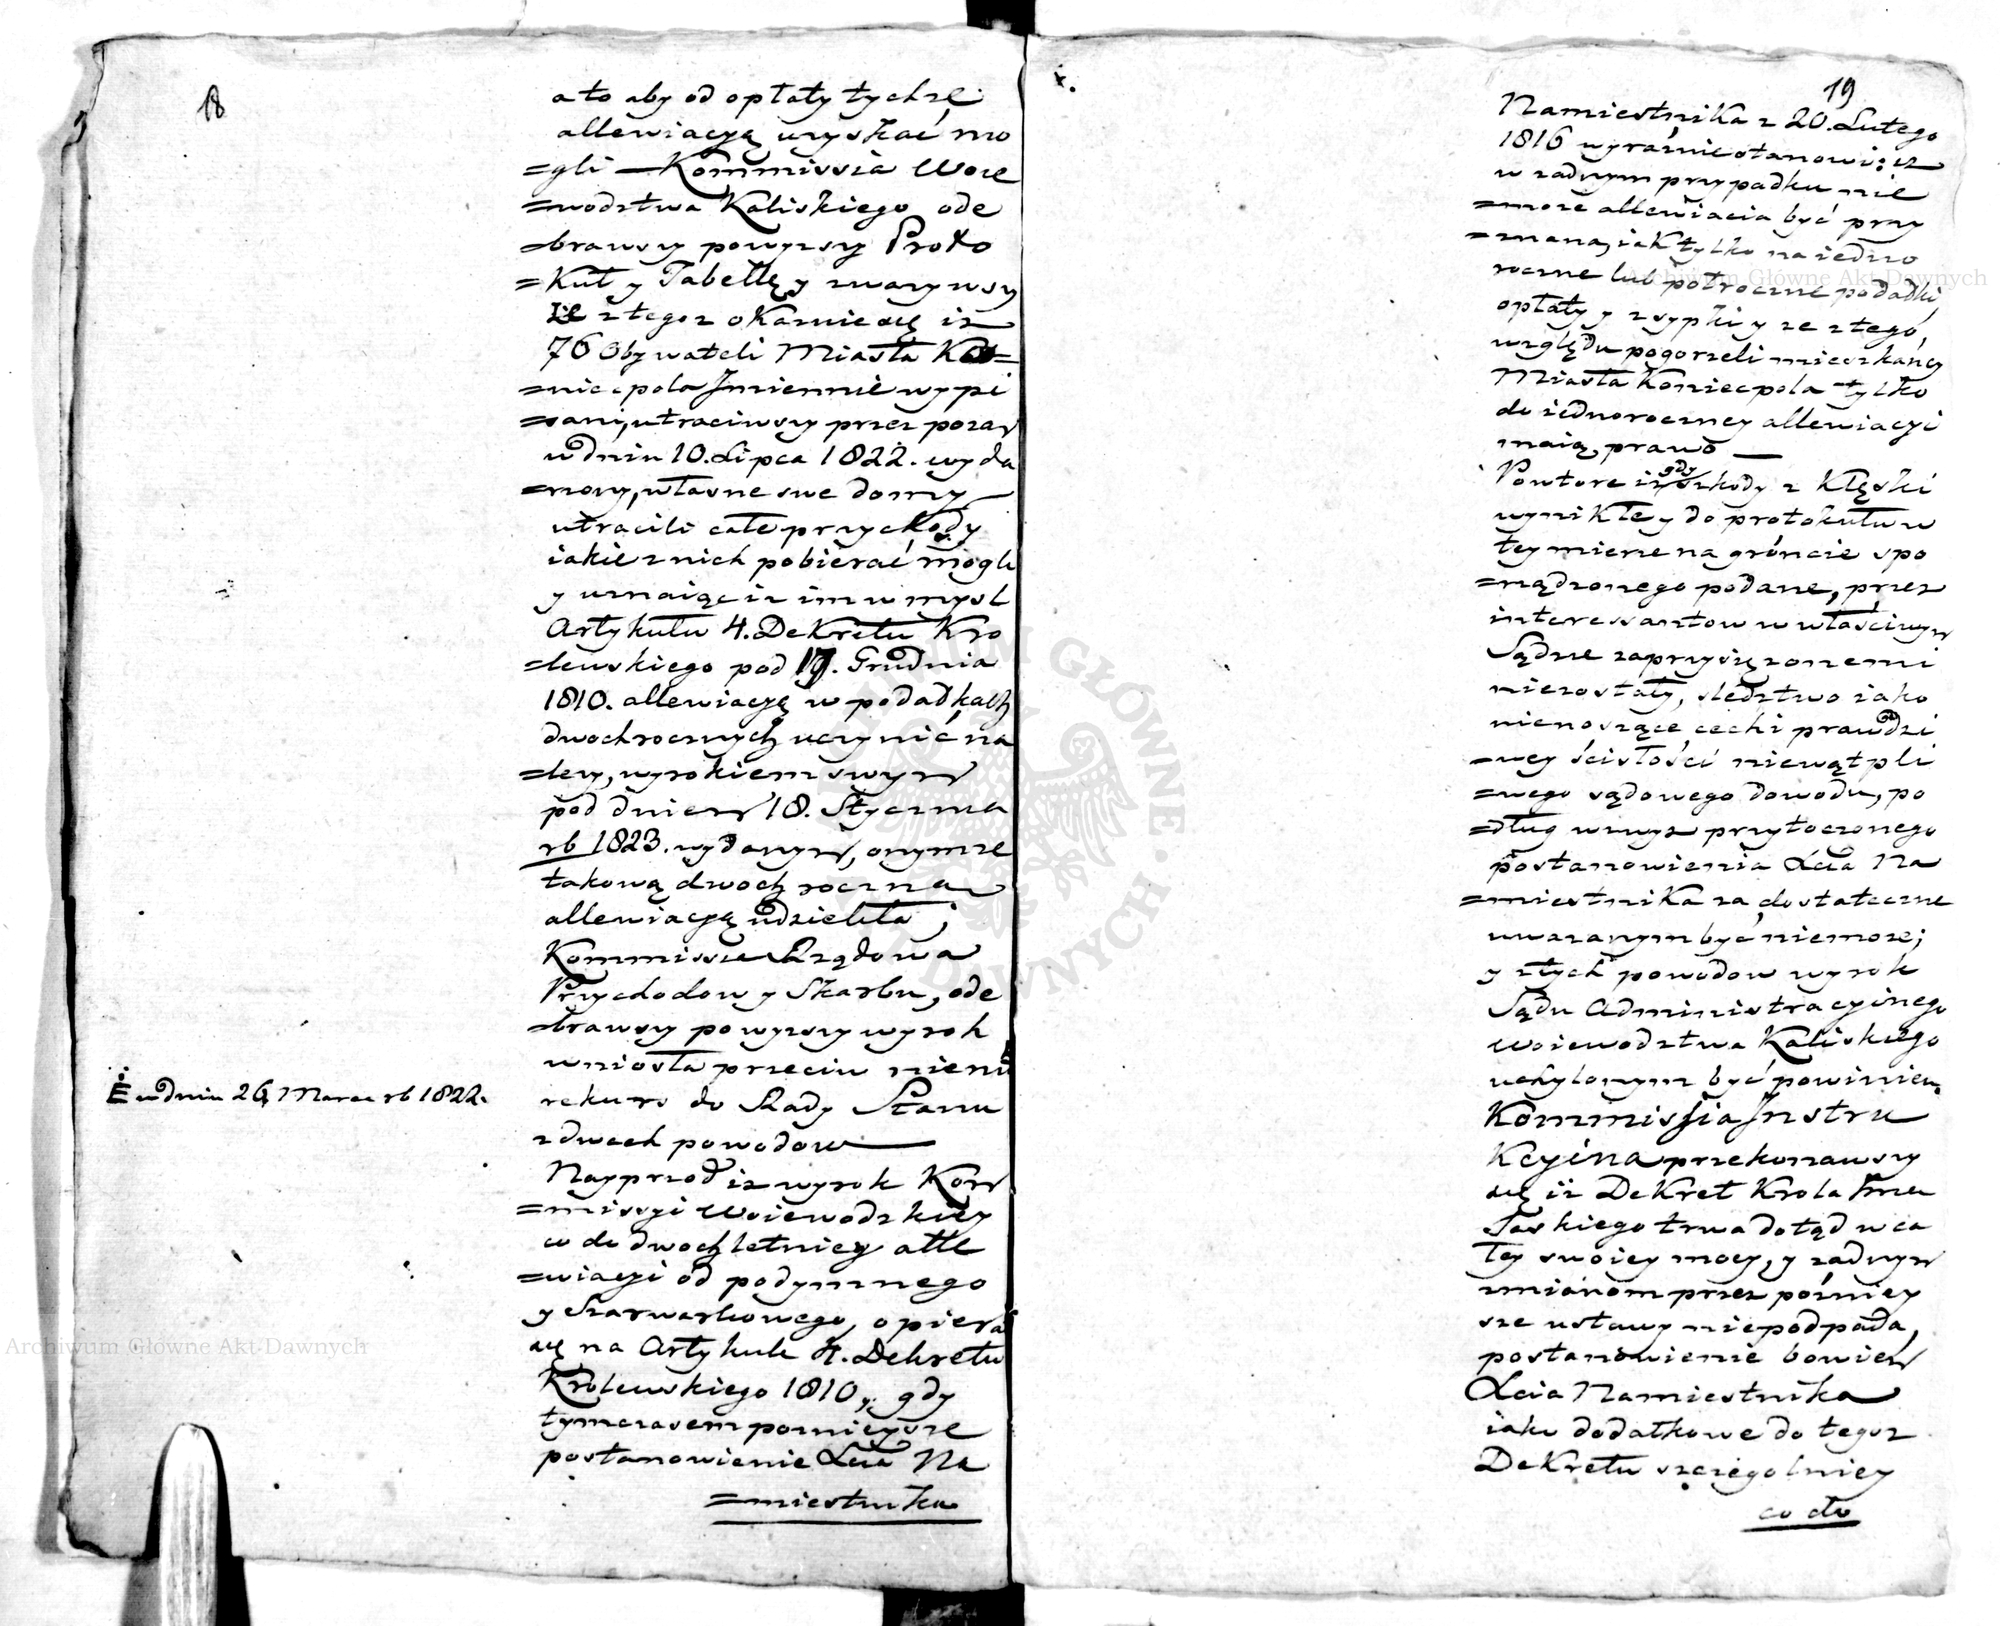 18
a to aby od opłaty tychże
allewiacyą uzyskać mo
=gli — Kommissia Woie
=wodztwa Kaliskiego ode
=brawszy powyższy Proto
=kuł y Tabellę y zważywszy
że z tegoz okazuie się iz
76 Obywateli Miasta Ko=
=niecpola Jmiennie wypi
=sani, utraciwszy przez pozar
w dniu 10. Lipca 1822. wyda
=rzony, własne swe domy
utracili całe przychody
iakie z nich pobierać mogli
y uznaiąc iz im w mysl
Artykułu 4. Dekretu Kro
=lewskiego pod 19. Grudnia
1810. allewiacyą w podatkach
dwochrocznych uczynić na
=lezy, wyrokiem swym
pod dniem 18. Stycznia
rb 1823. wydanym, onymze
takową dwochroczną
allewiacyą udzieliła;
Kommissia Rządowa
Przychodow y Skarbu, ode
=brawszy powyzszy wyrok
wniosła przeciw niemu
É w dniu 26 Marca rb 1822.
rekurs do Rady Stanu
z dwoch powodow —
Nayprzod iz wyrok Kom
=missyi Woiewodzkiey
co do dwochletniey alle
=wiacyi od podymnego
y Szarwarkowego, opiera
się na Artykule 4. Dekretu
Krolewskiego 1810, gdy
tymczasem poznieysze
postanowienie Xcia Na
=miestnika
19
Namiestnika z 20. Lutego
1816 wyraźnie stanowi: iz
w zadnym przypadku nie
=może allewiacia być przy
=znana, iak tylko na iedno
roczne lub połroczne podatki,
opłaty y zsypki y ze z tego
względu pogorzeli mieszkańcy
Miasta Koniecpola tylko
do iednoroczney allewiacyi
maią prawo —
Powtore iz gdy szkody z klęski
wynikłey do protokułu w
tey mierze na gróncie spo
=rządzonego podane, przez
interessantow w właściwym
Sądzie zaprzysięzonemi
niezostały, sledztwo iako
nienoszące cechi prawdzi
=wey ścisłości niewątpli
=wego sądowego dowodu, po
=dług wzwyz przytoczonego
postanowienia Xcia Na
=miestnika za dostateczne
uwazanym być niemoze;
y z tych powodow wyrok
Sądu Administracyinego
Woiewodztwa Kaliskiego
uchylonym być powinien.
Kommissia Jnstru
Kcyina przekonawszy
się iż Dekret Krola Jmci
Saskiego trwa dotąd w ca
łey swoiey mocy, y zadnym
zmianom przez późniey
sze ustawy niepodpada,
postanowienie bowiem
Xcia Namiestnika
iako dodatkowe do tegoz
Dekretu szczegolniey
co do
Archiwum Główne Akt Dawnych
Archiwum Główne Akt Dawnych